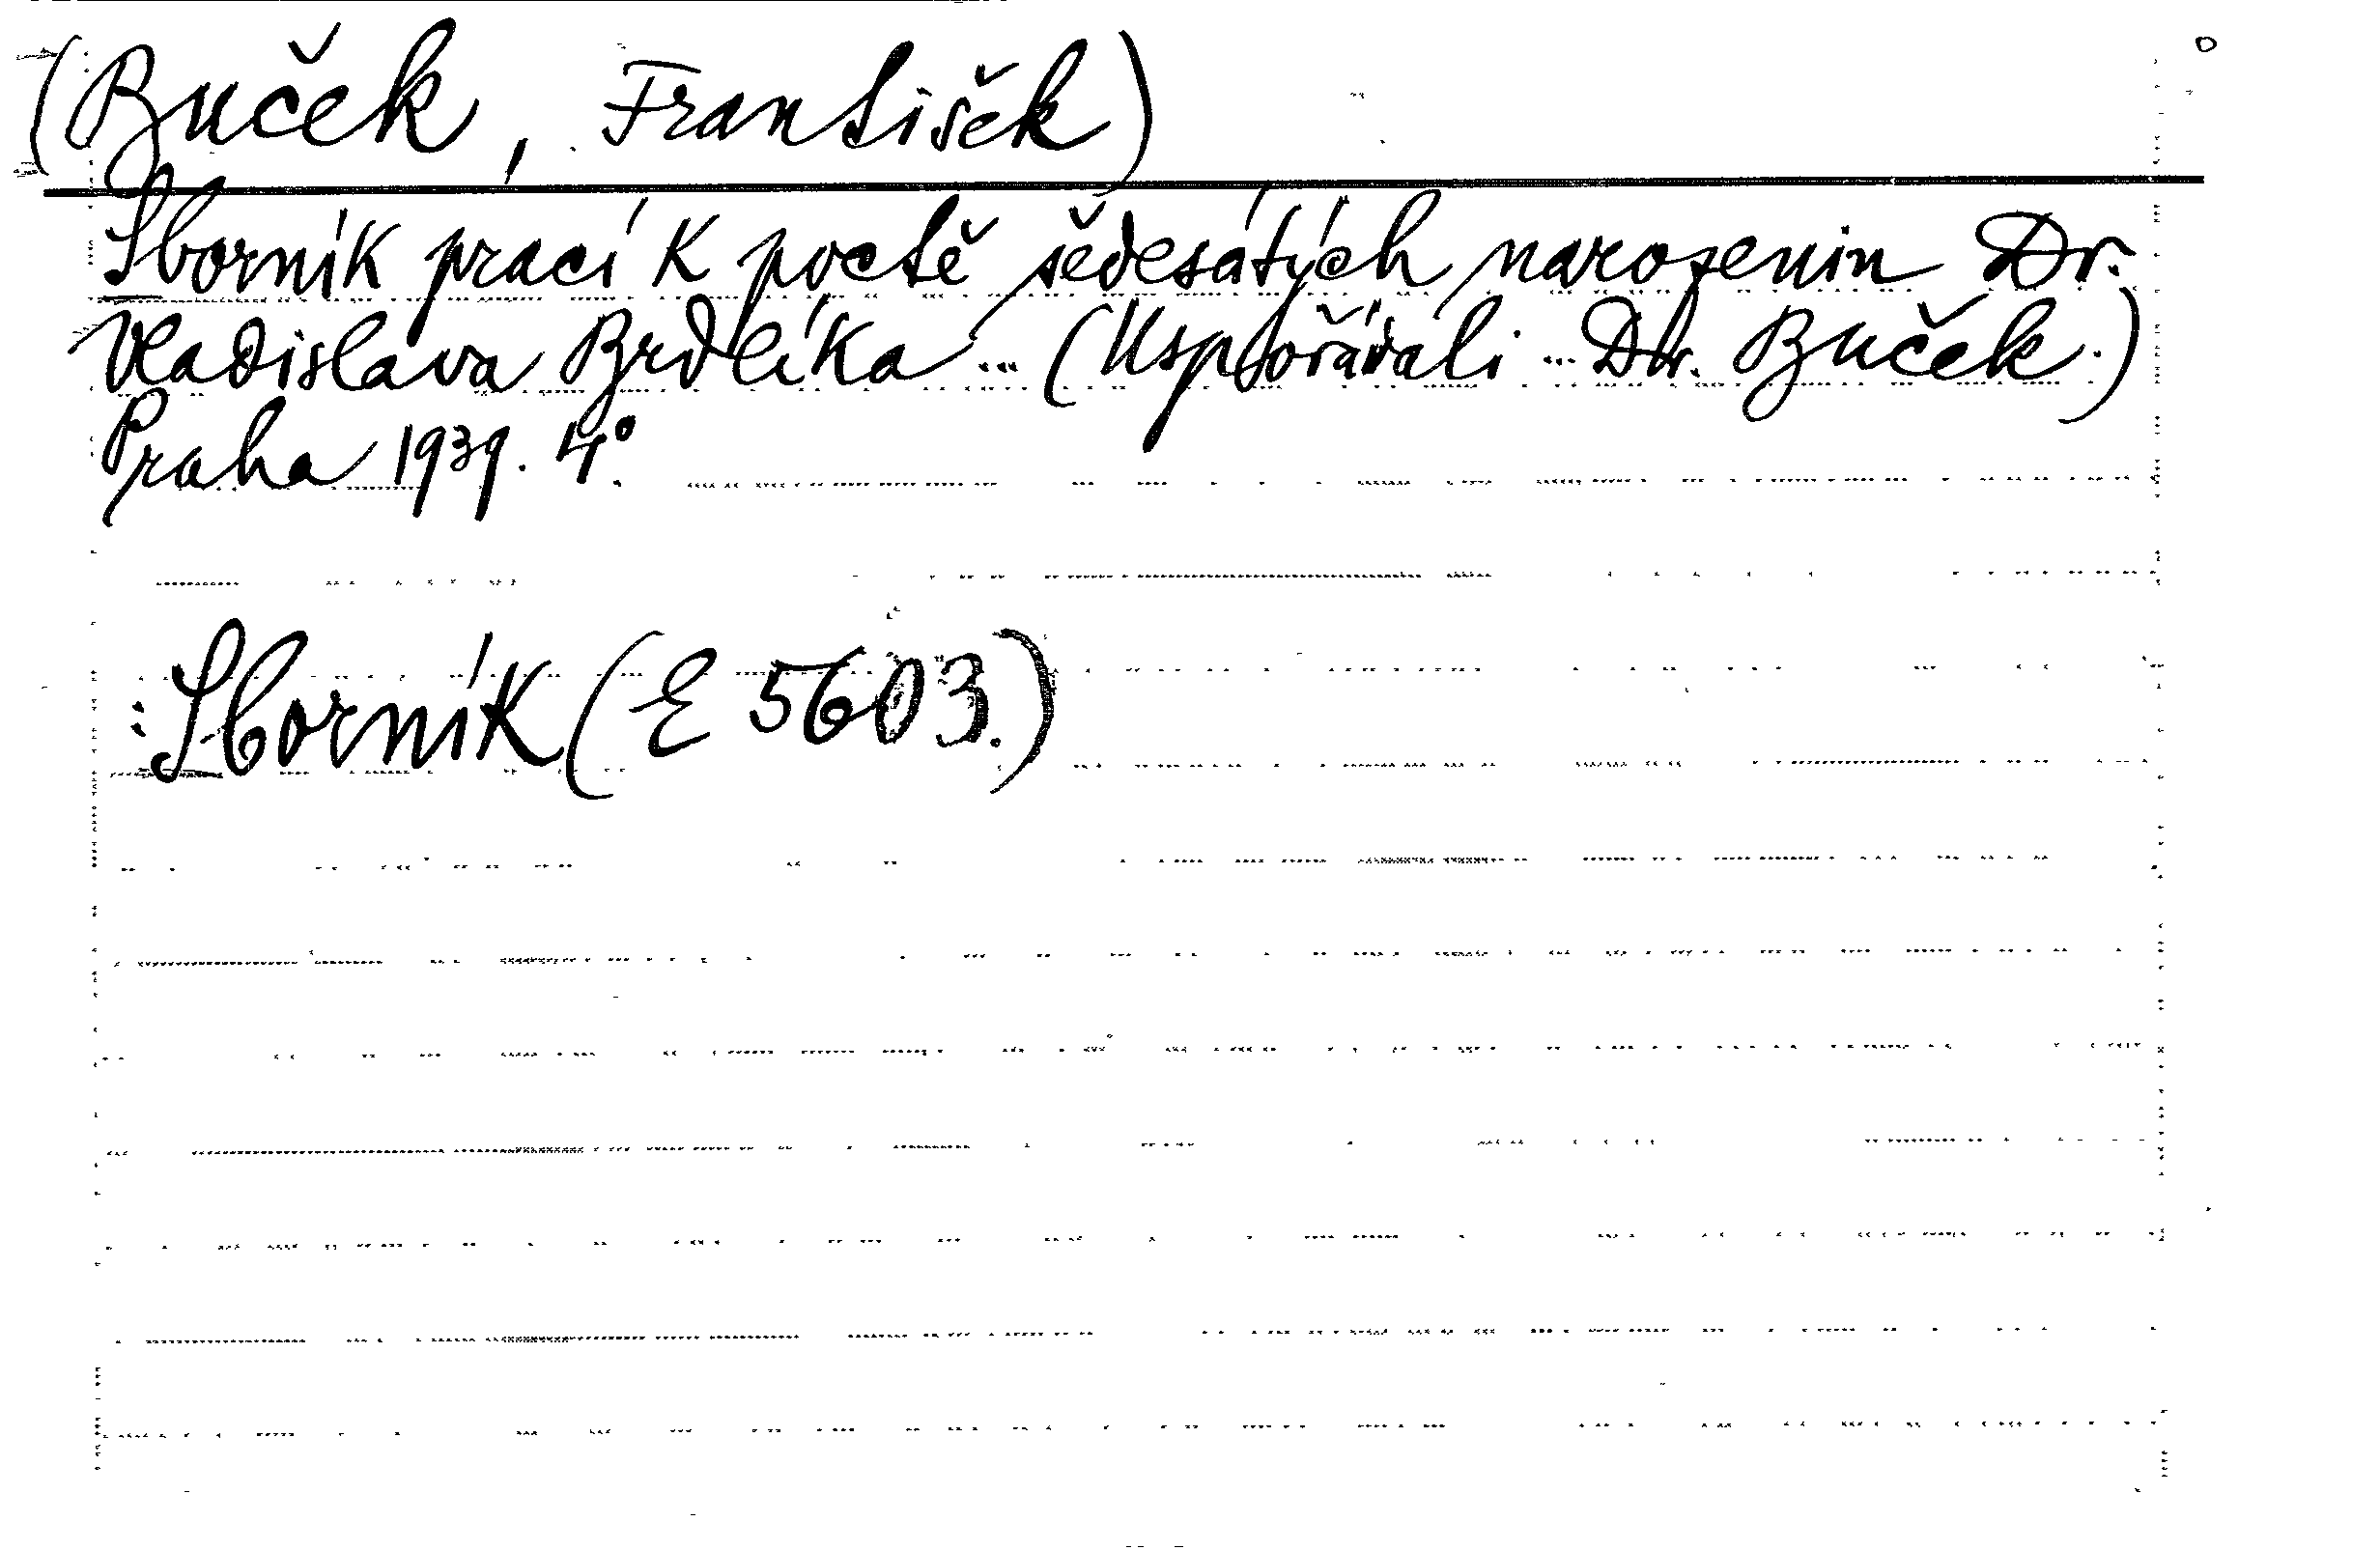 (Buček, František)
Sborník prací k poctě šedesátých narozenin Dr.
Vladislava Brdlíka ... (Uspořádali ... Dr. Buček.)
Praha 1939. 4°.
: Sborník (E 5603.)